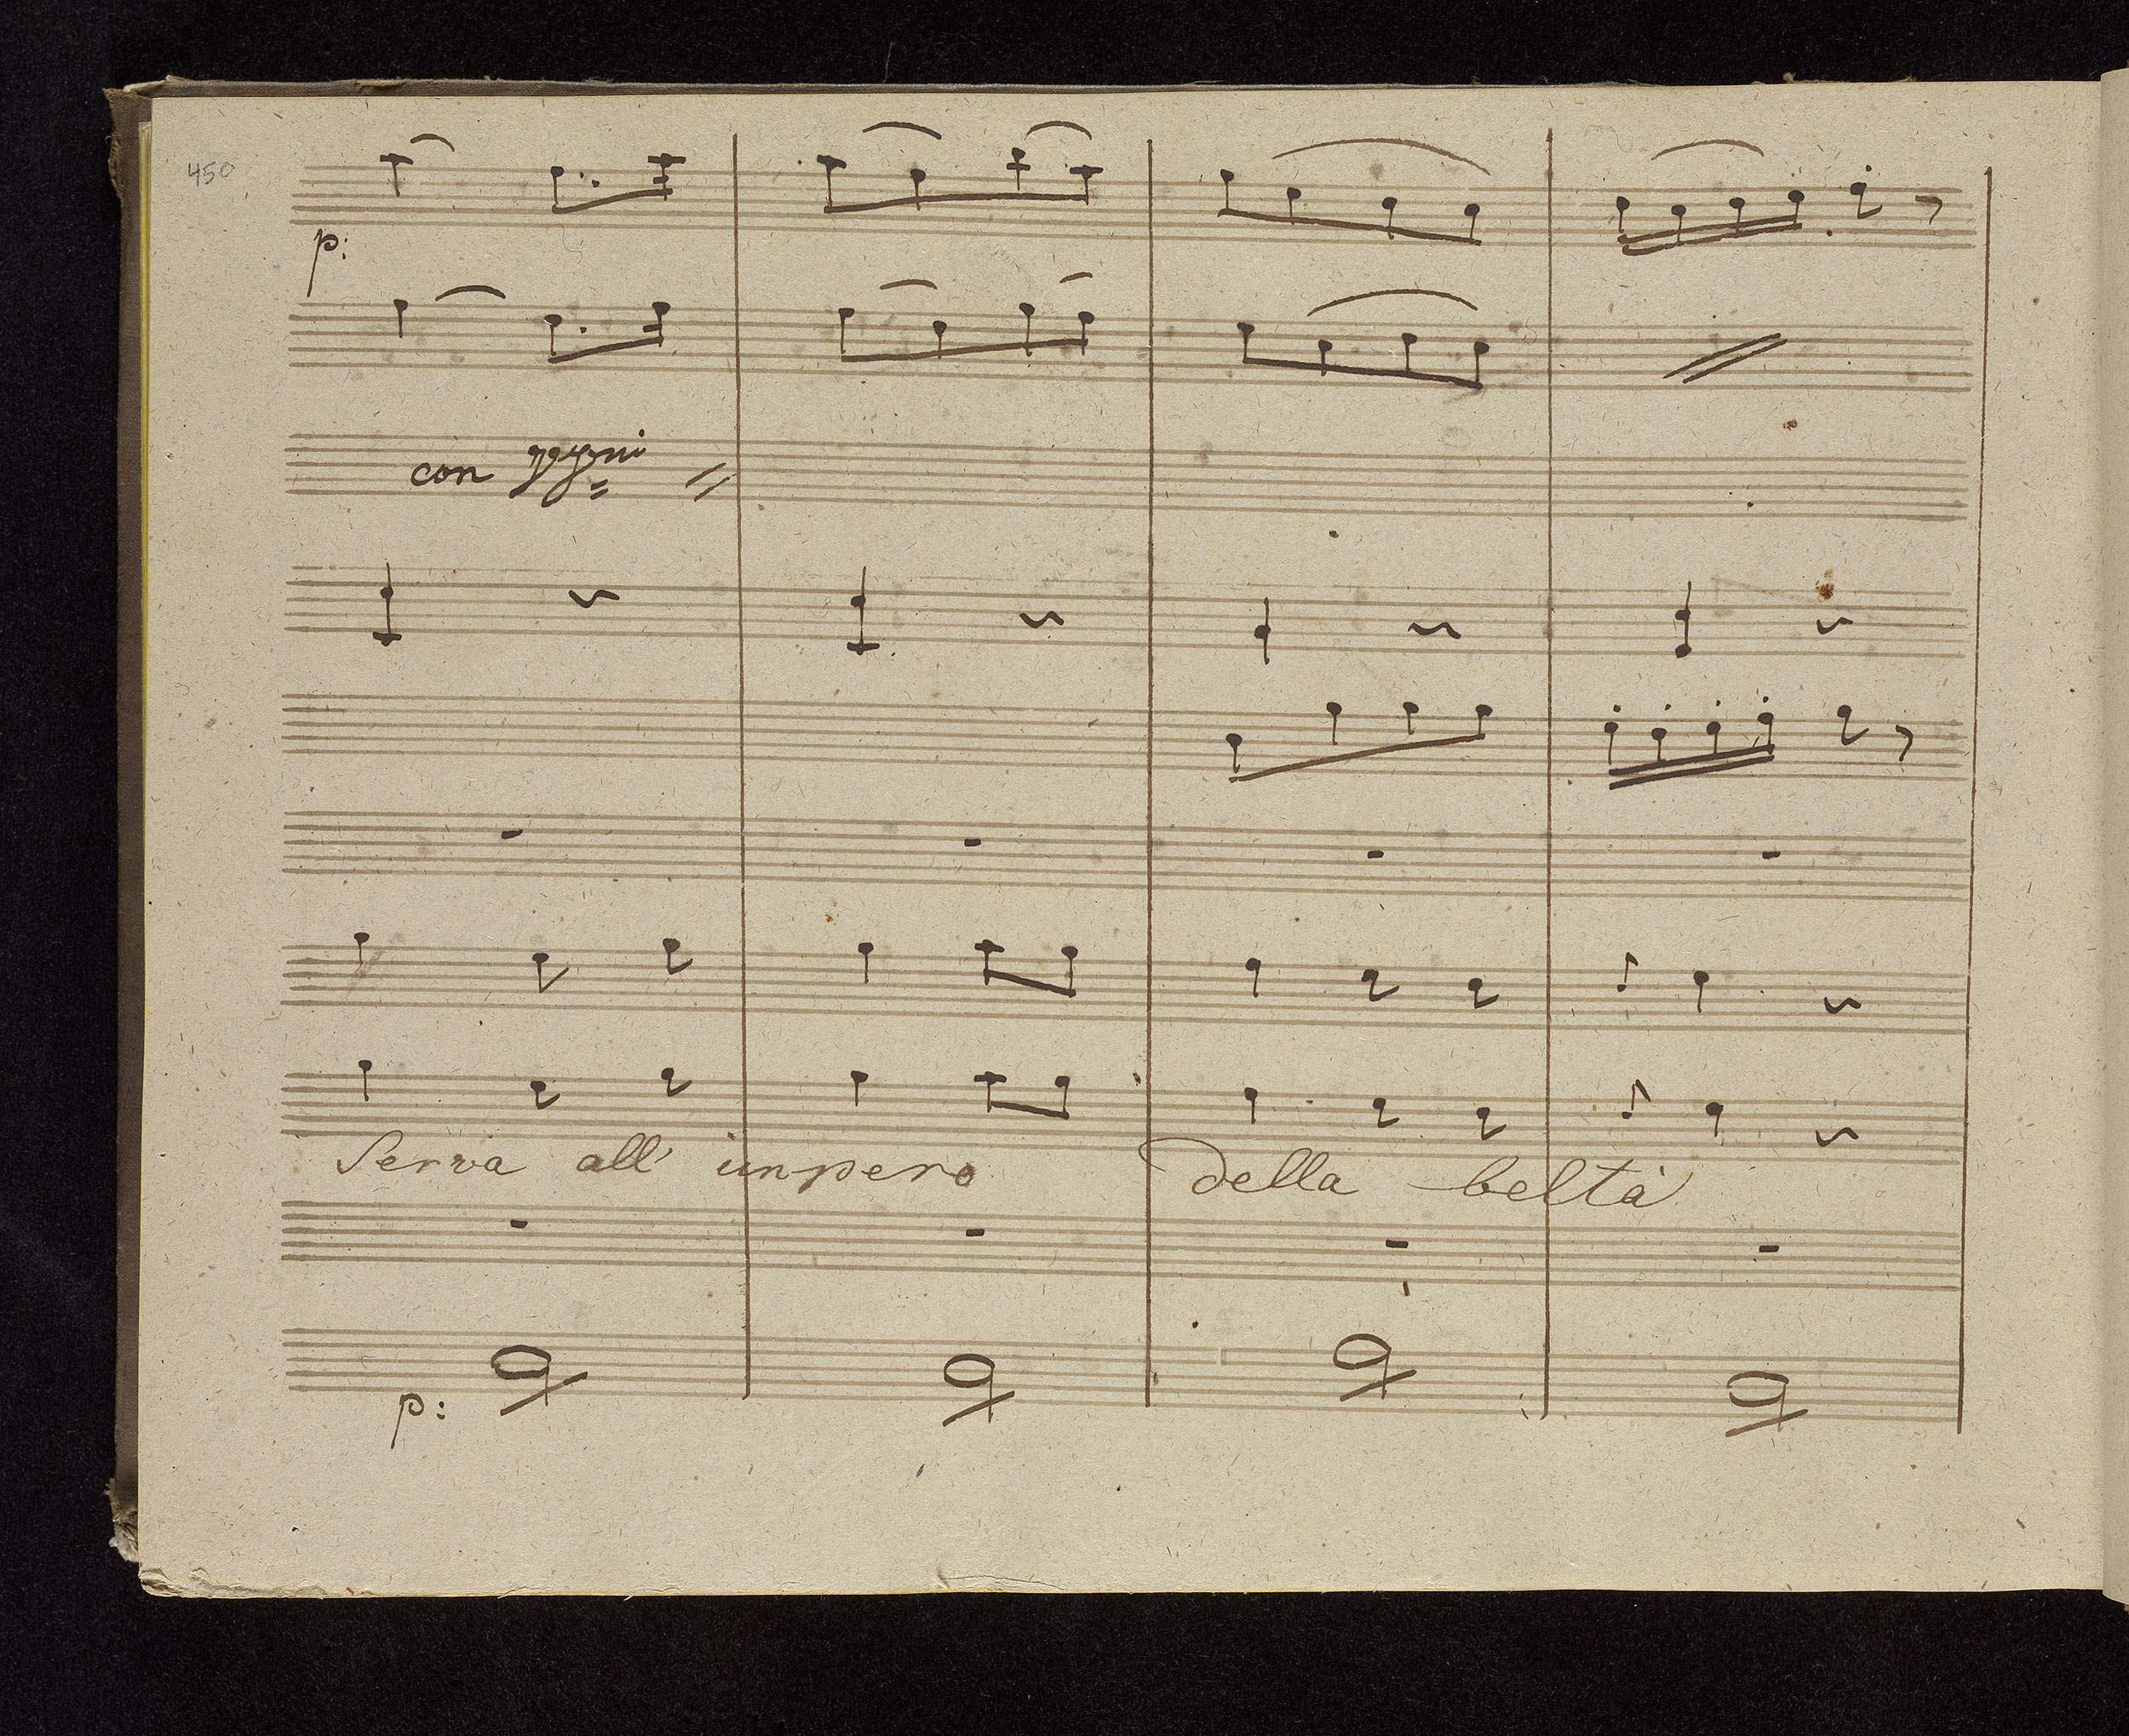 450
p:
con
Serva all' impero della beltà
p: